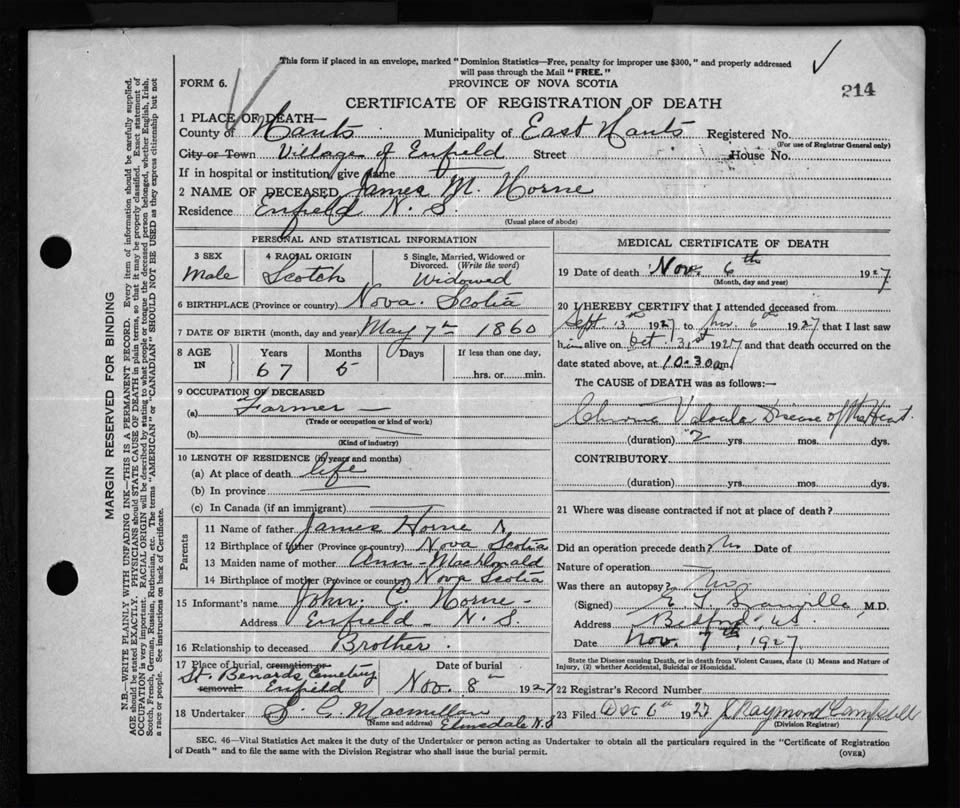 This form if placed in an envelope, marked "Dominion Statistics—Free, penalty for improper use $300," and properly addressed
will pass through the Mail "FREE."
FORM 6. PROVINCE OF NOVA SCOTIA 214
CERTIFICATE OF REGISTRATION OF DEATH
1 PLACE OF DEATH—
County of Hants Municipality of East Hants Registered No.
(For use of Registrar General only)
City or Town Village of Enfield Street House No.
If in hospital or institution, give name
2 NAME OF DECEASED James M. Horne
Residence Enfield N. S.
(Usual place of abode)
PERSONAL AND STATISTICAL INFORMATION
3 SEX 4 RACIAL ORIGIN 5 Single, Married, Widowed or
Divorced. (Write the word)
Male Scotch Widowed
6 BIRTHPLACE (Province or country) Nova. Scotia
7 DATE OF BIRTH (month, day and year) May 7th 1860
8 AGE IN Years Months Days If less than one day,
67 5 hrs. or min.
9 OCCUPATION OF DECEASED
(a) Farmer —
(Trade or occupation or kind of work)
(b)
(Kind of industry)
10 LENGTH OF RESIDENCE (in years and months)
(a) At place of death life
(b) In province
(c) In Canada (if an immigrant)
Parents
11 Name of father James Horne
12 Birthplace of father (Province or country) Nova Scotia
13 Maiden name of mother Ann MacDonald
14 Birthplace of mother (Province or country) Nova Scotia
15 Informant's name John. C. Horne -
Address Enfield - N. S.
16 Relationship to deceased Brother.
17 Place of burial, cremation or Date of burial
St. Benards Cemetery
removal Enfield Nov. 8th 1927
18 Undertaker S. C. Macmillan
(Name and address) Elmsdale N. S
MEDICAL CERTIFICATE OF DEATH
19 Date of death Nov. 6th 1927
(Month, day and year)
20 I HEREBY CERTIFY that I attended deceased from
Sept 13th 1927 to Nov. 6th 1927 that I last saw
him alive on Oct 31st 1927 and that death occurred on the
date stated above, at 10.30am
The CAUSE of DEATH was as follows:—
Chronic Valvula Disease of the Heart.
(duration) 2 yrs. mos. dys.
CONTRIBUTORY.
(duration) yrs. mos. dys.
21 Where was disease contracted if not at place of death?
Did an operation precede death? No Date of
Nature of operation
Was there an autopsy? No
(Signed) E. M.D.
Address Bedford
Date Nov. 7th, 1927
State the Disease causing Death, or in death from Violent Causes, state (1) Means and Nature of
Injury, (2) whether Accidental, Suicidal or Homicidal.
22 Registrar's Record Number
23 Filed Dec 6th 1927 Raymond Campbell
(Division Registrar)
SEC. 46—Vital Statistics Act makes it the duty of the Undertaker or person acting as Undertaker to obtain all the particulars required in the "Certificate of Registration
of Death" and to file the same with the Division Registrar who shall issue the burial permit.
(OVER)
MARGIN RESERVED FOR BINDING
N.B.—WRITE PLAINLY WITH UNFADING INK—THIS IS A PERMANENT RECORD. Every item of information should be carefully supplied.
AGE should be stated EXACTLY. PHYSICIANS should STATE CAUSE OF DEATH in plain terms, so that it may be properly classified. Exact statement of
OCCUPATION is very important. RACIAL ORIGIN will be described by stating to what people or tongue the deceased person belonged, whether English, Irish,
Scotch, French, German, Russian, Ruthenian, etc. The terms "AMERICAN" or "CANADIAN" SHOULD NOT BE USED as they express citizenship but not
a race or people. See instructions on back of Certificate.